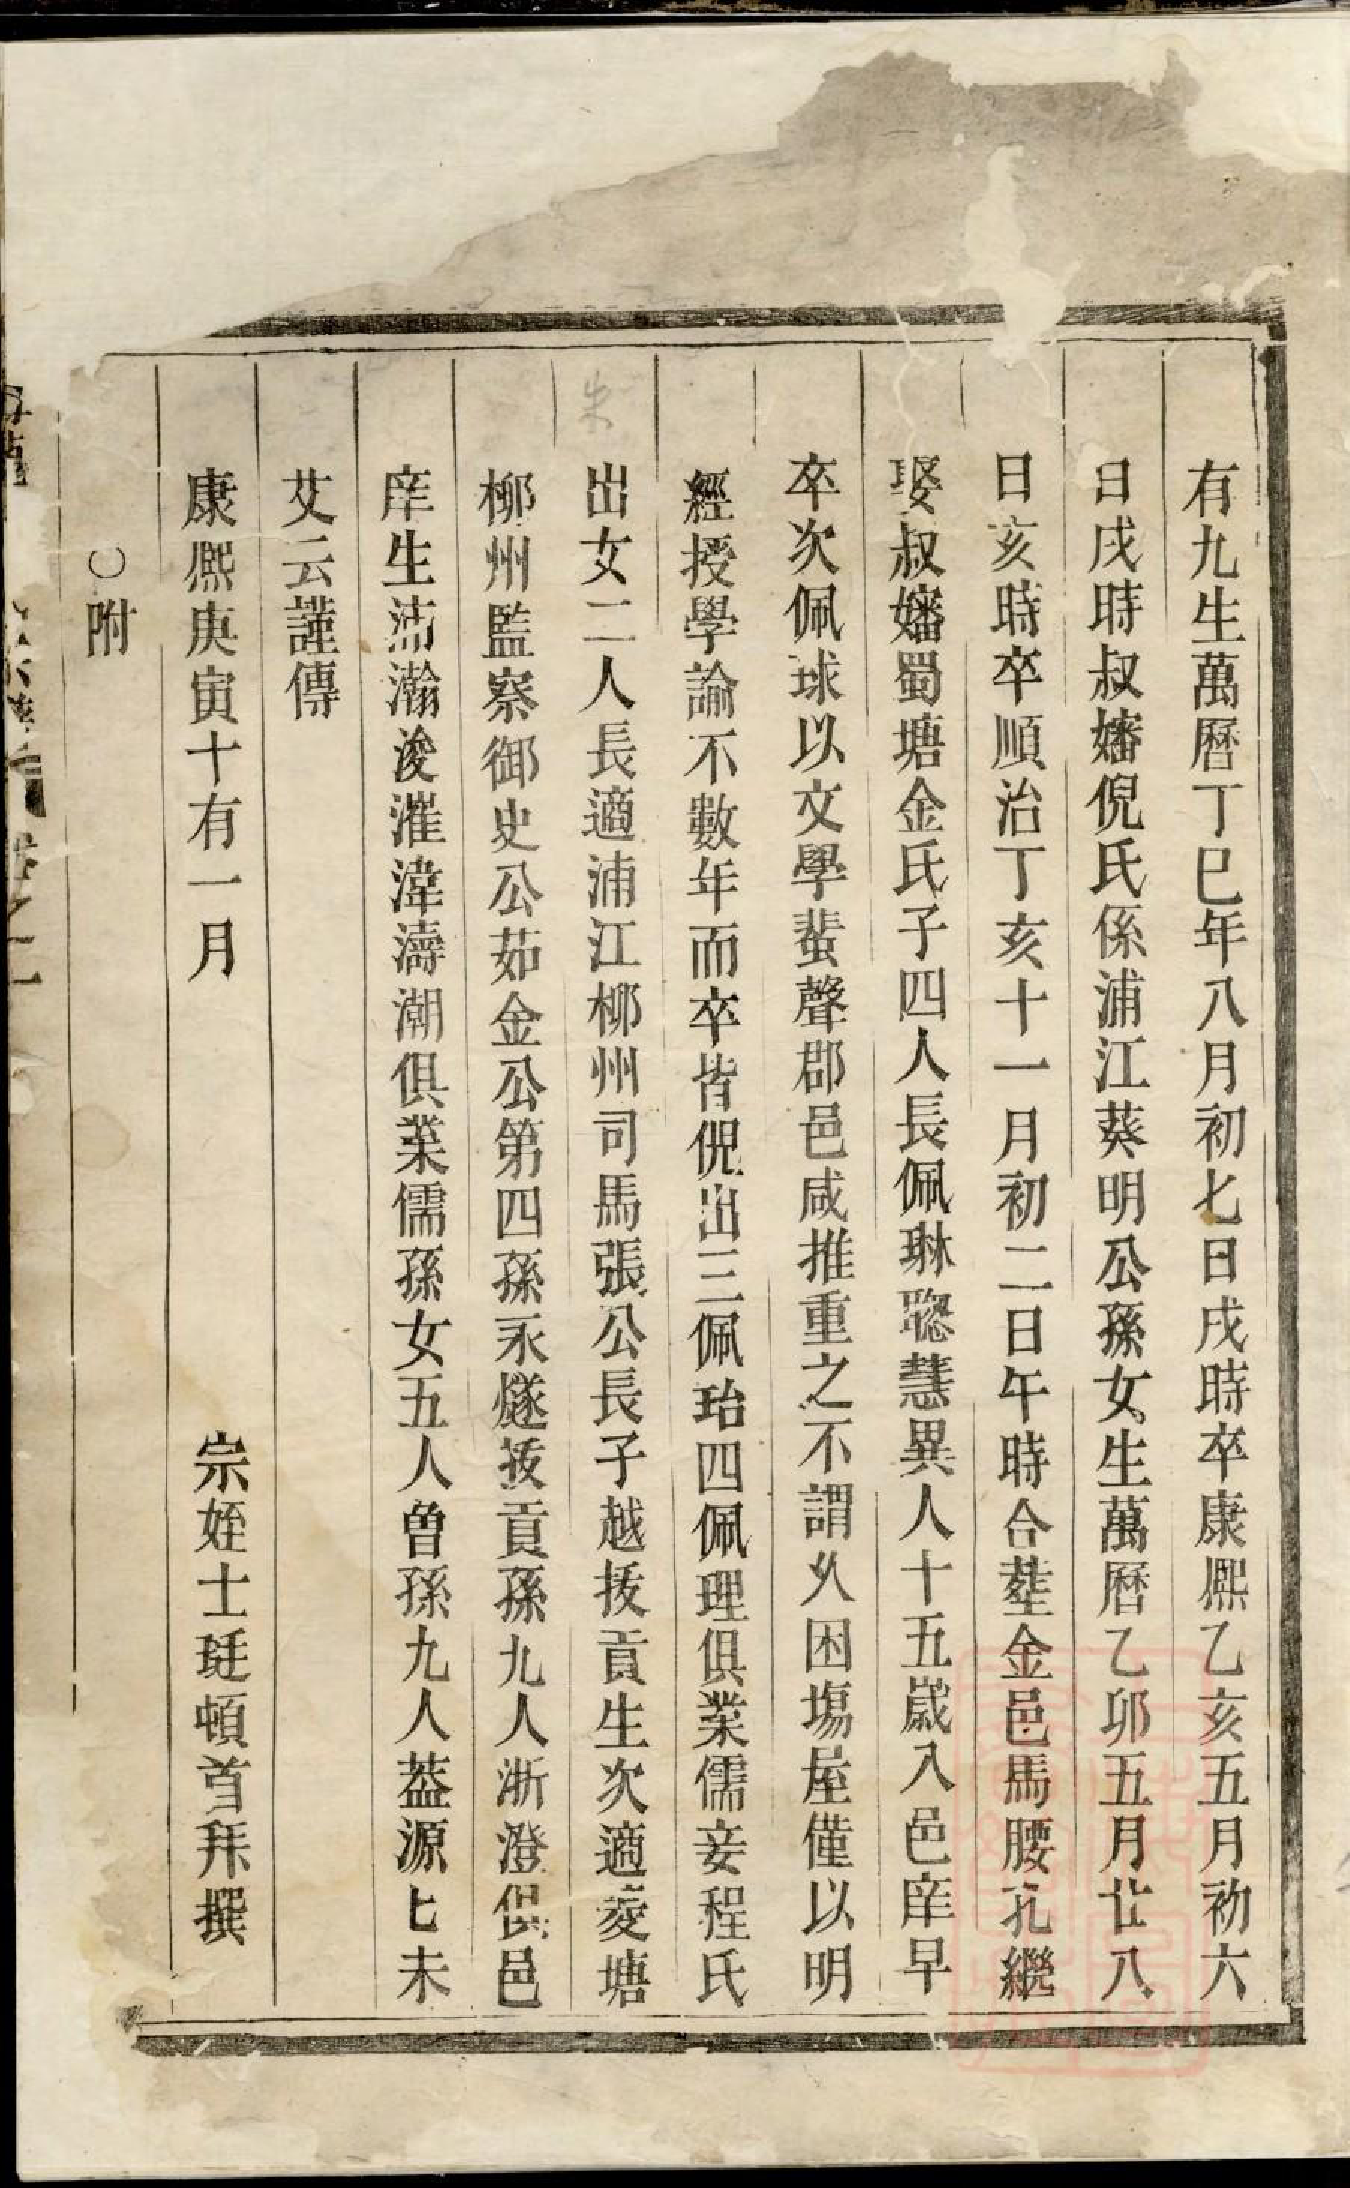 有九生萬曆丁巳年八月初七日戌時卒康熙乙亥五月初六
日戌時叔嬸倪氏係浦江葵明公孫女生萬曆乙卯五月廿八
日亥時卒順治丁亥十一月初二日午時合塟金邑馬腰孔繼
娶叔嬸蜀塘金氏子四人長佩琳聰慧異人十五歲入邑庠早
卒次佩球以文學蜚聲郡邑咸推重之不謂乆困塲屋僅以明
經授學諭不數年而卒皆倪出三佩珆四佩理俱業儒妾程氏
出女二人長適浦江柳州司馬張公長子越拔貢生次適菱塘
柳州監察御史公茹金公第四孫永燧拔貢孫九人浙澄俱邑
庠生沛瀚浚漼湋濤潮俱業儒孫女五人曾孫九人葢源七未
艾云謹傳
康熙庚寅十有一月 宗姪士珽頓首拜撰
○附